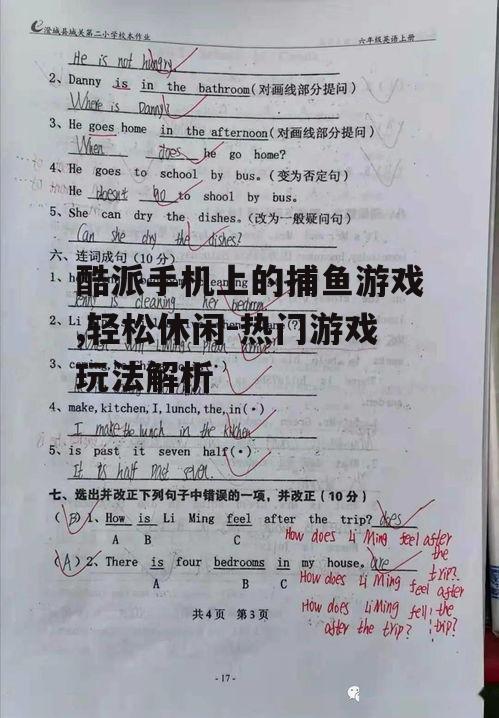 澄城县城关第二小学校本作业 六年级英语上册
He is not hungry
2、Danny is in the bathroom(对画线部分提问)
Where is Danny?
3、He goes home in the afternoon(对画线部分提问)
When does he go home?
4、He goes to school by bus.(变为否定句)
He doesn't go to shool by bus.
5、She can dry the dishes.(改为一般疑问句)
Can she dry the dishes?
六、连词成句(10分)
酷派手机上的捕鱼游戏
1、
is cleaning her bedroom
,轻松休闲-热门游戏
2、Li
玩法解析
3、
4、make,kitchen,I,lunch,the,in(.)
I make the lunch in the kitchen
5、is past it seven half(.)
It is half past seven.
七、选出并改正下列句子中错误的一项,并改正(10分)
(B)1、How is Li Ming feel after the trip? does
A B C
How does Li Ming feel after the trip?
(A)2、There is four bedrooms in my house. are
A B C
How does Li Ming feel after
How does Li Ming fell the
after the trip? trip?
共4页 第3页
-17-